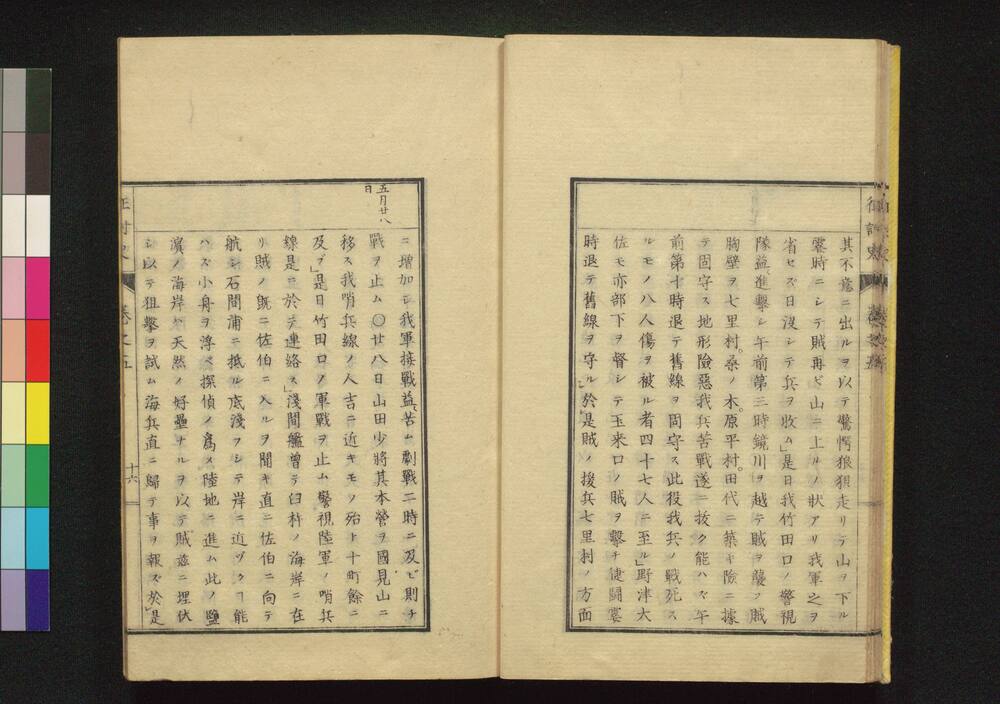 其不意ニ出ルヲ以テ驚愕狼狽走リテ山ヲ下ル
霎時ニシテ賊再ビ山ニ上ルノ狀アリ我軍之ヲ
省セズ日沒シテ兵ヲ收ム」是日我竹田口ノ警視
隊益進擊シ午前第三時鏡川ヲ越テ賊ヲ襲フ賊
胸壁ヲ七里村。桑ノ木。原平村。田代ニ築キ險ニ據
テ固守ス地形險惡我兵苦戰遂ニ拔ク能ハズ午
前第十時退テ舊線ヲ固守ス此役我兵ノ戰死ス
ルモノ八人傷ヲ被ル者四十七人ニ至ル」野津大
佐モ亦部下ヲ督シテ玉来口ノ賊ヲ擊チ健鬪
時退テ舊線ヲ守ル」於是賊ノ援兵七里村ノ方面
征討史
卷之五
五月廿八日
ニ增加シ我軍接戰益苦ム劇戰二時ニ及ビ則チ
戰ヲ止ム〇廿八日山田少將其本營ヲ國見山ニ
移ス我哨兵線ノ人吉ニ近キモノ殆ト十町餘ニ
及ブ」是日竹田口ノ軍戰ヲ止ム警視陸軍ノ哨兵
線是ニ於テ連絡ス」淺間艦曾テ臼杵ノ海岸ニ在
リ賊ノ既ニ佐伯ニ入ルヲ聞キ直ニ佐伯ニ向テ
航シ石間浦ニ抵ル底淺フシテ岸ニ近ヅクヿ能
ハズ小舟ヲ浮ベ探偵ノ爲メ陸地ニ進ム此ノ鹽
濱ノ海岸ハ天然ノ好壘ナルヲ以テ賊茲ニ埋伏
シ以テ狙擊ヲ試ム海兵直ニ歸テ事ヲ報ズ於」是
征討史
卷之五
十六